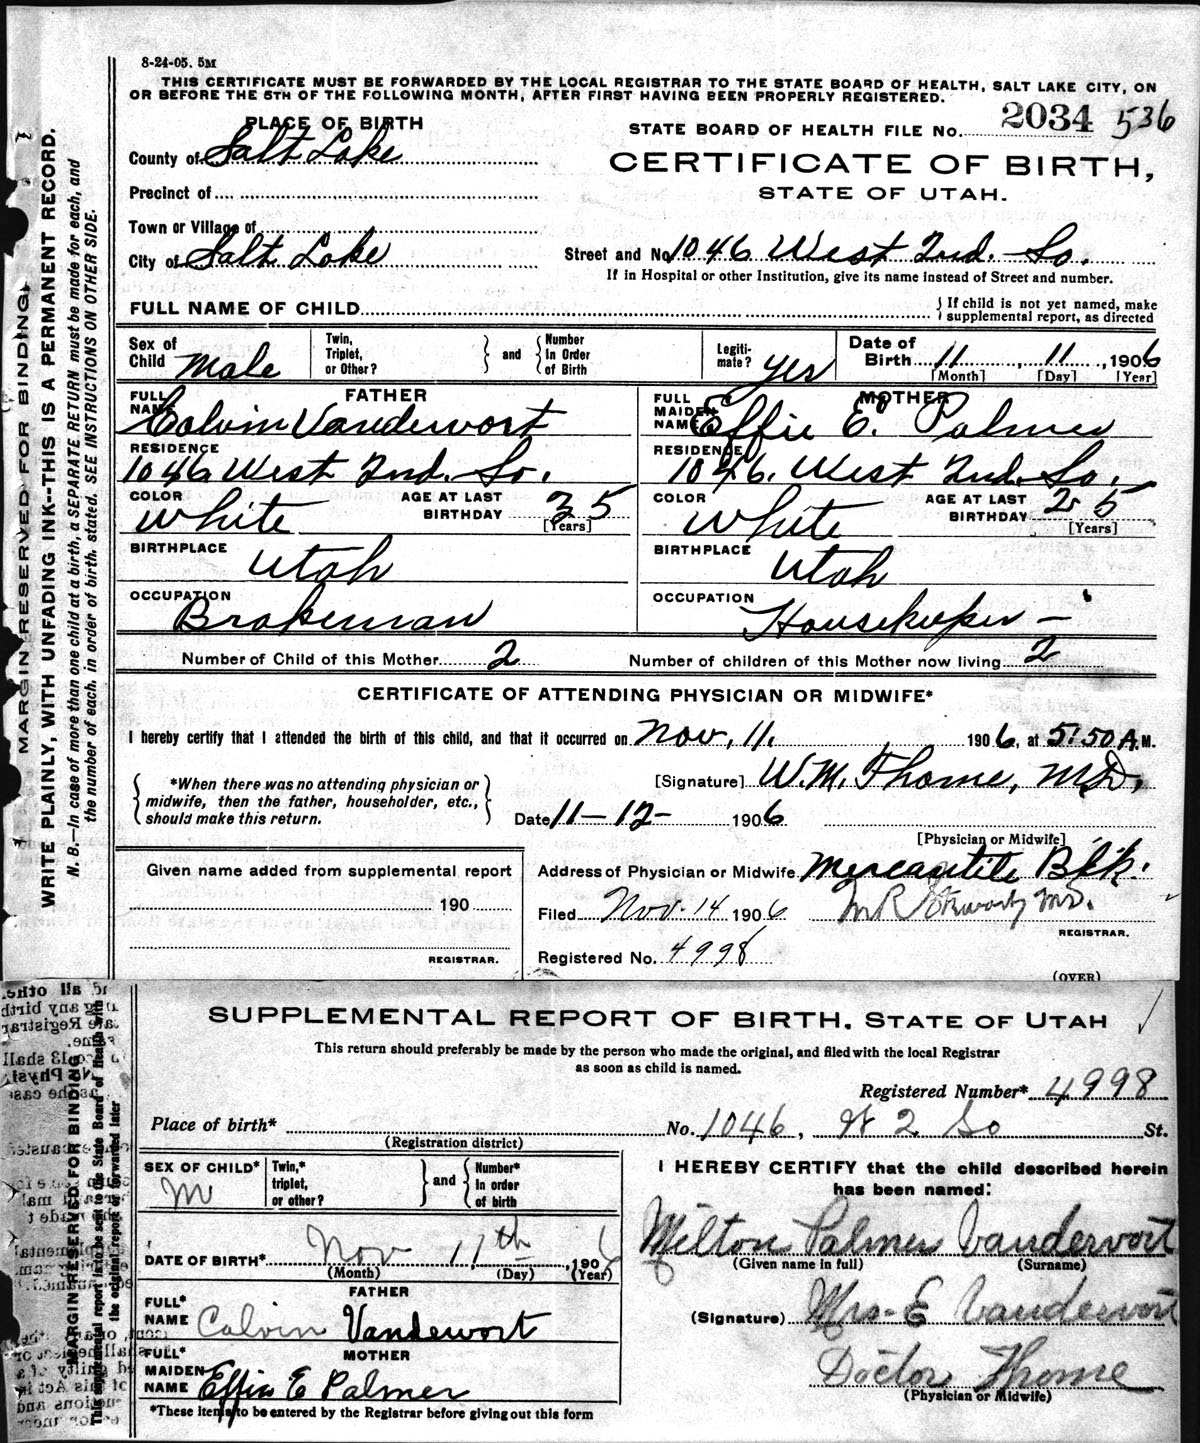 8-24-05. 5M
THIS CERTIFICATE MUST BE FORWARDED BY THE LOCAL REGISTRAR TO THE STATE BOARD OF HEALTH, SALT LAKE CITY, ON
OR BEFORE THE 5TH OF THE FOLLOWING MONTH, AFTER FIRST HAVING BEEN PROPERLY REGISTERED.
MARGIN RESERVED FOR BINDING
WRITE PLAINLY, WITH UNFADING INK--THIS IS A PERMANENT RECORD.
N. B.—In case of more than one child at a birth, a SEPARATE RETURN must be made for each, and
the number of each, in order of birth, stated. SEE INSTRUCTIONS ON OTHER SIDE.
PLACE OF BIRTH
STATE BOARD OF HEALTH FILE No. 2034 536
County of Salt Lake
CERTIFICATE OF BIRTH,
STATE OF UTAH.
Precinct of
Town or Village of
City of Salt Lake
Street and No. 1046 West 2nd. So.
If in Hospital or other Institution, give its name instead of Street and number.
FULL NAME OF CHILD
If child is not yet named, make
supplemental report, as directed
Sex of Child Male
Twin, Triplet, or Other? and Number In Order of Birth
Legiti-mate? yes
Date of Birth 11 11, 1906
[Month] [Day] [Year]
FATHER
FULL NAME Calvin Vandewort
RESIDENCE
1046 West 2nd. So.
COLOR White AGE AT LAST BIRTHDAY 35
[Years]
BIRTHPLACE Utah
OCCUPATION Brakeman
MOTHER
FULL MAIDEN NAME Effie E. Palmer
RESIDENCE
1046. West 2nd. So.
COLOR White AGE AT LAST BIRTHDAY 25
[Years]
BIRTHPLACE Utah
OCCUPATION Housekeeper –
Number of Child of this Mother 2 Number of children of this Mother now living 2
CERTIFICATE OF ATTENDING PHYSICIAN OR MIDWIFE*
I hereby certify that I attended the birth of this child, and that it occurred on Nov. 11. 1906, at 5:50 A.M.
*When there was no attending physician or
midwife, then the father, householder, etc.,
should make this return.
[Signature] W. M. Thome, M.D.
Date 11-12- 1906
[Physician or Midwife]
Given name added from supplemental report
190
REGISTRAR.
Address of Physician or Midwife Mercantile Blk.
Filed Nov. 14 1906 M.D.
REGISTRAR.
Registered No. 4998
(OVER)
SUPPLEMENTAL REPORT OF BIRTH, STATE OF UTAH
This return should preferably be made by the person who made the original, and filed with the local Registrar
as soon as child is named.
MARGIN RESERVED FOR BINDING
This supplemental report is to be sent to the State Board of Health with
the original report or forwarded later
Registered Number* 4998
Place of birth* No. 1046, W 2 So St.
(Registration district)
SEX OF CHILD* M
Twin,* triplet, or other? and Number* In order of birth
DATE OF BIRTH* Nov 11th, 1906
(Month) (Day) (Year)
FATHER
FULL* NAME Calvin Vandewort
MOTHER
FULL* MAIDEN NAME Effie E Palmer
*These items to be entered by the Registrar before giving out this form
I HEREBY CERTIFY that the child described herein
has been named:
Milton Palmer Vandervort
(Given name in full) (Surname)
(Signature) Mrs E Vandewort
Doctor Thome
(Physician or Midwife)